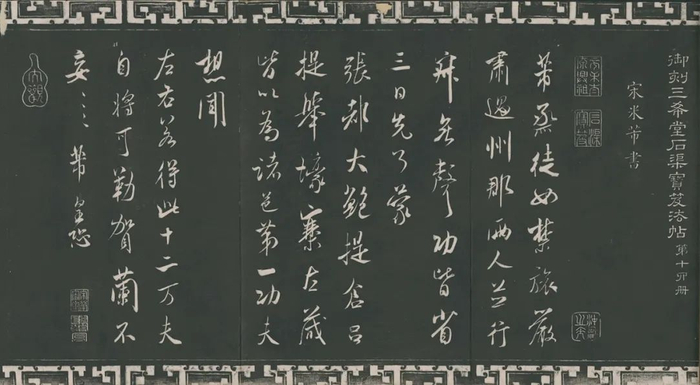 御刻三希堂石渠寶笈法帖 第十四冊
宋米芾書
芾烝徒如禁旅嚴
肅過州郡兩人並行
寂無聲功皆省
三日先了蒙
張都大鮑提倉呂
提舉壕寨左藏
皆以為諸邑第一功夫
想聞
左右若得此十二万夫
自將可勒賀蘭不
妄〻〻芾皇恐